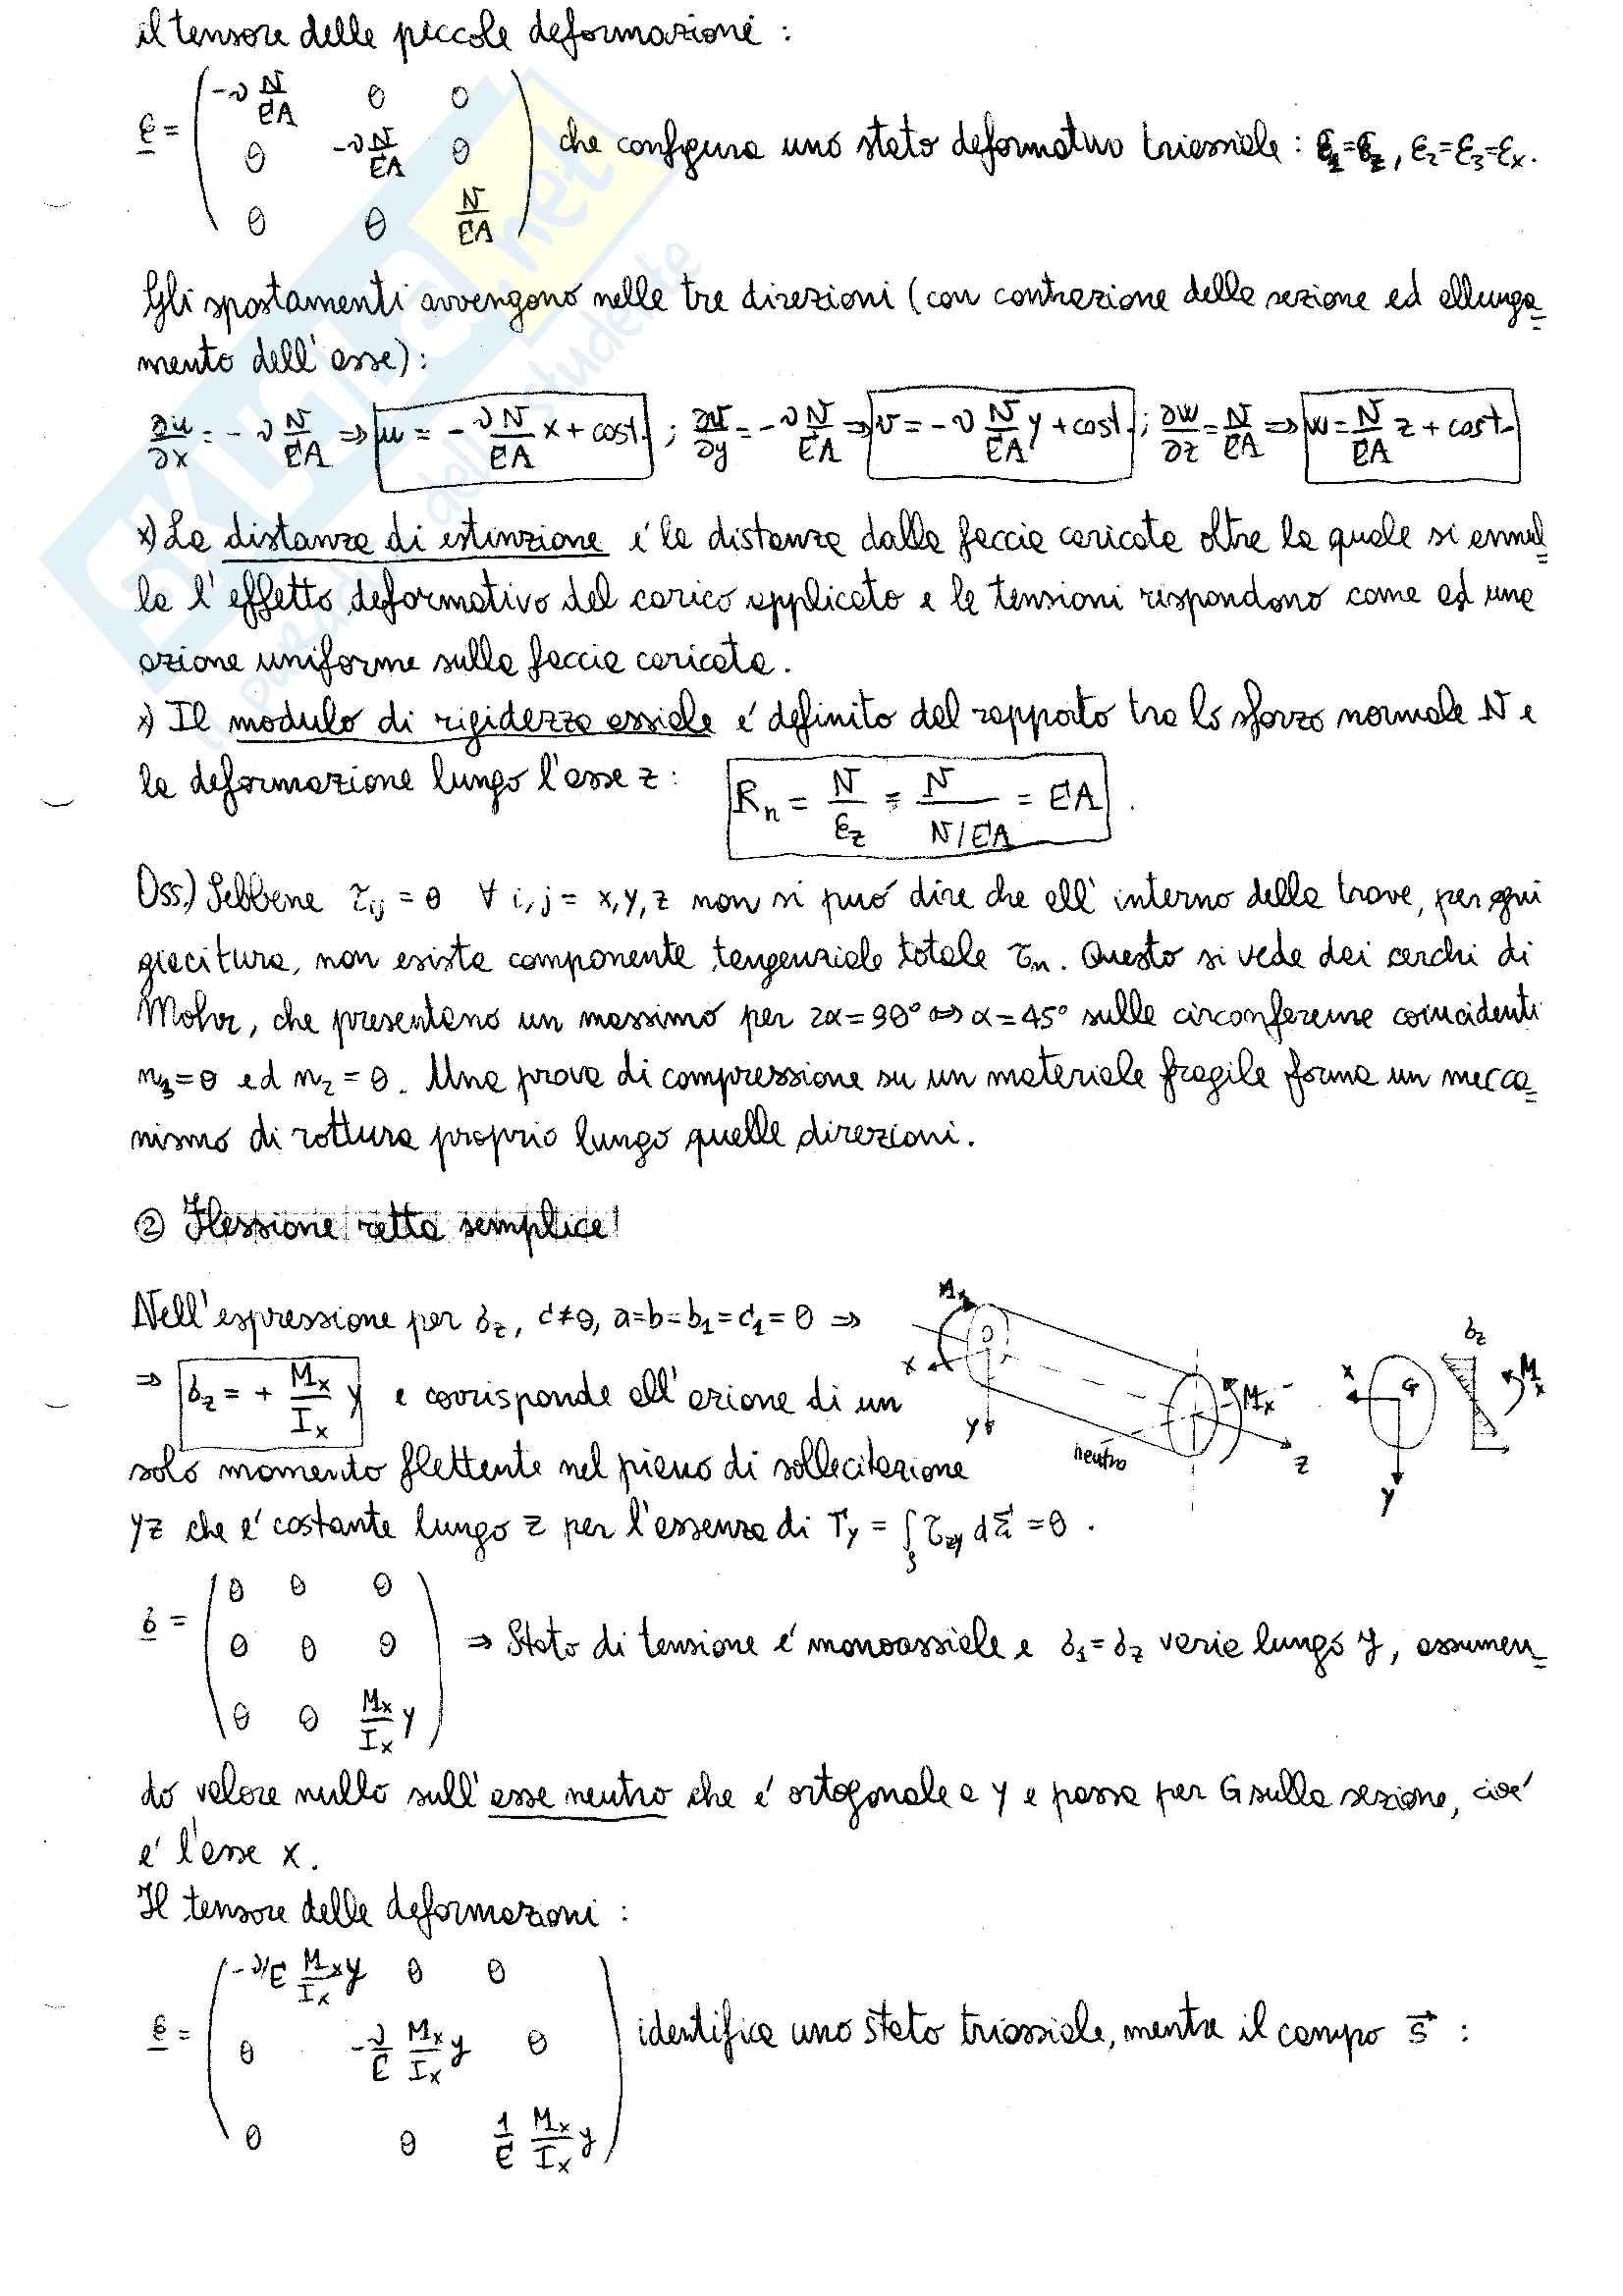 il tensore delle piccole deformazioni :
ε = ( -ν N/EA 0 0
0 -ν N/EA 0
0 0 N/EA ) che configura uno stato deformativo triassiale : ε₁=ε_z, ε₂=ε₃=ε_x.
Gli spostamenti avvengono nelle tre direzioni (con contrazione della sezione ed allunga=
mento dell'asse):
∂u/∂x = - ν N/EA ⇒ u = - νN/EA x + cost. ; ∂v/∂y = -ν N/EA ⇒ v = -ν N/EA y + cost. ; ∂w/∂z = N/EA ⇒ w = N/EA z + cost.
x) La distanza di estinzione é la distanza dalla faccia caricata oltre la quale si annul=
la l'effetto deformativo del carico applicato e le tensioni rispondono come ad una
azione uniforme sulla faccia caricata.
x) Il modulo di rigidezza assiale é definito dal rapporto tra lo sforzo normale N e
la deformazione lungo l'asse z : R_n = N/ε_z = N / N/EA = EA .
Oss.) Sebbene τ_ij = 0 ∀ i, j = x, y, z non si puó dire che all'interno della trave, per ogni
giacitura, non esista componente tangenziale totale τ_n. Questo si vede dai cerchi di
Mohr, che presentano un massimo per 2α = 90° ⇔ α = 45° sulle circonferenze coincidenti
n₃ = 0 ed n₂ = 0. Una prova di compressione su un materiale fragile forma un mecca=
nismo di rottura proprio lungo quelle direzioni.
② Flessione retta semplice
Nell'espressione per σ_z, c≠0, a=b=b₁=c₁=0 ⇒
⇒ σ_z = + M_x/I_x y e corrisponde all'azione di un
solo momento flettente nel piano di sollecitazione
x y M_x z neutro
x G y σ_z M_x
yz che é costante lungo z per l'assenza di T_y = ∫ τ_zy dΣ = 0 .
σ = ( 0 0 0
0 0 0
0 0 M_x/I_x y ) ⇒ Stato di tensione é monoassiale e σ₁ = σ_z varia lungo y, assumen=
do valore nullo sull'asse neutro che é ortogonale a y e passa per G sulla sezione, cioé
é l'asse x.
Il tensore delle deformazioni :
ε = ( -ν/E M_x/I_x y 0 0
0 -ν/E M_x/I_x y 0
0 0 1/E M_x/I_x y ) identifica uno stato triassiale, mentre il campo s⃗ :